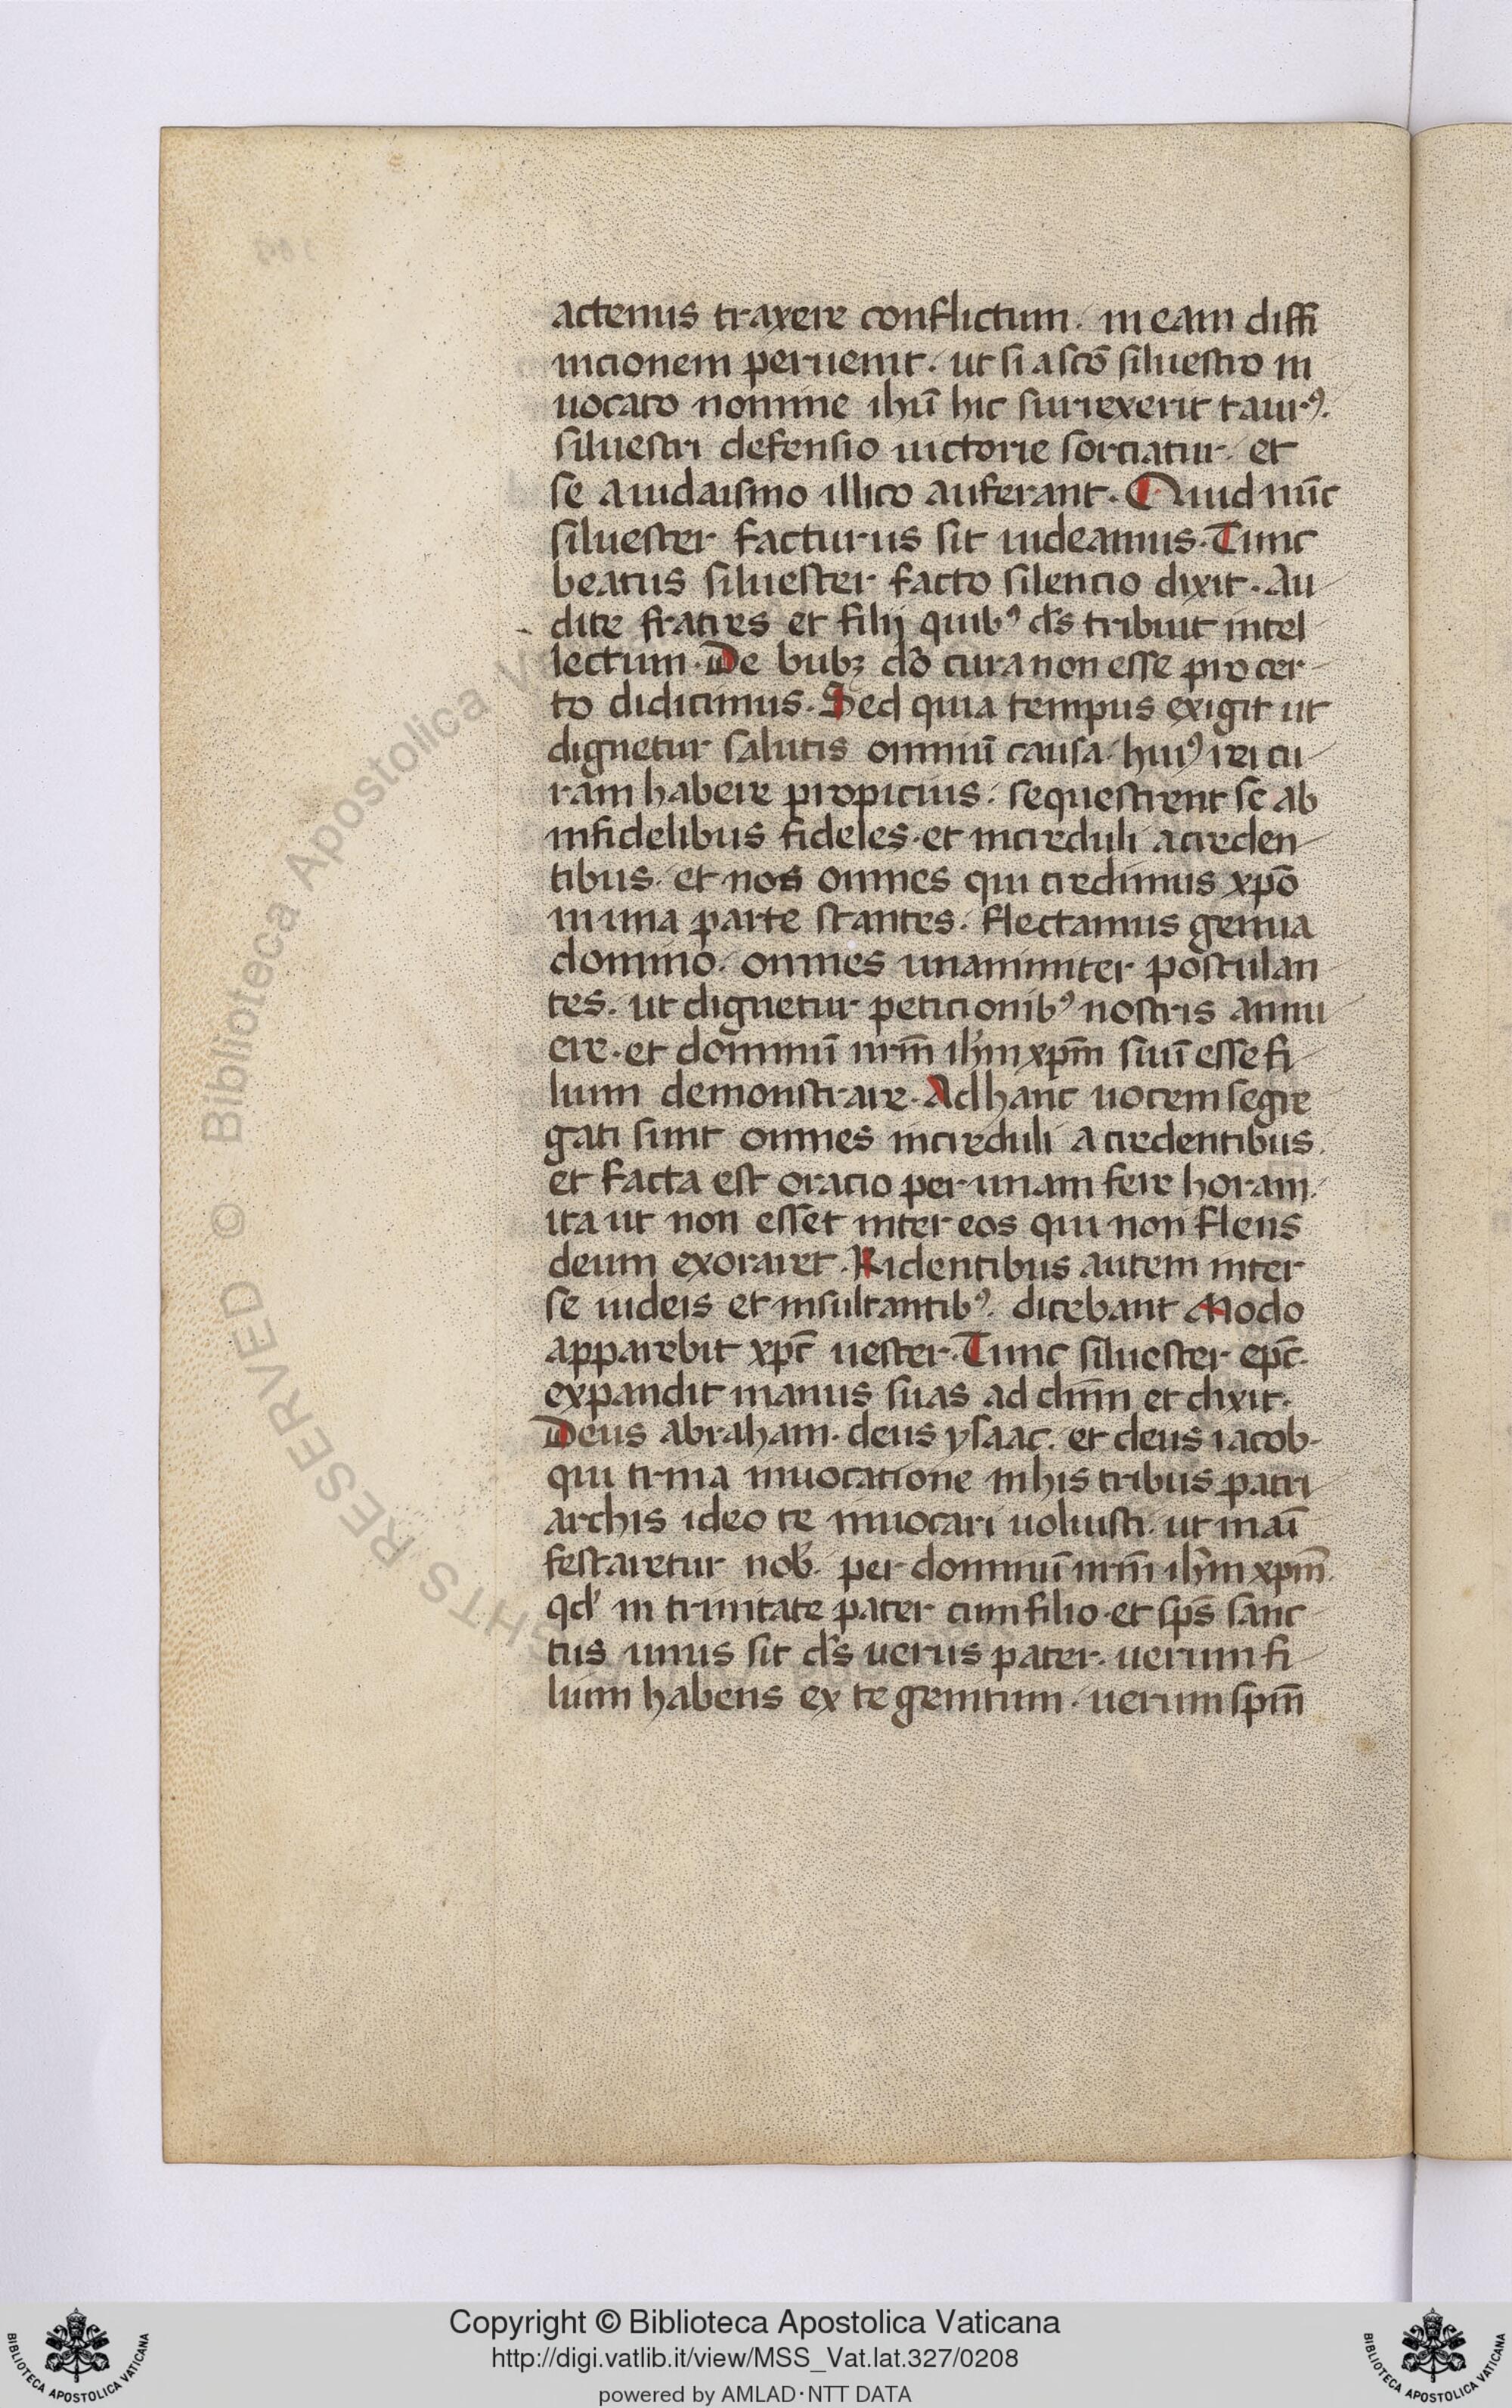 actenus traxere conflictum. in eam diffi
nicionem peruenit. ut si a sc̄o siluestro in
uocato nomine ihū hic surrexerit taurꝰ.
siluestri defensio uictorie sorciatur. et
se a iudaismo illico auferant. Quid nūc
siluester facturus sit uideamus. Tunc
beatus siluester facto silencio dixit. Au
dite fratres et filij quibꝰ ds̄ tribuit intel
lectum. De bubꝫ dō cura non esse pro cer
to didicimus. Sed quia tempus exigit ut
dignetur salutis omniū causa. huiꝰ rei cu
ram habere propicius. sequestrent se ab
infidelibus fideles. et increduli a creden
tibus. et nos omnes qui credimus xpō
in una parte stantes. flectamus genua
domino. omnes unanimiter postulan
tes. ut dignetur peticionibꝰ nostris annu
ere. et dominū nrm̄ ihm̄ xpm̄ suū esse fi
lium demonstrare. Ad hanc uocem segre
gati sunt omnes increduli a credentibus.
et facta est oracio per unam fere horam.
ita ut non esset inter eos qui non flens
deum exoraret. Ridentibus autem inter
se iudeis et insultantibꝰ. dicebant Modo
apparebit xpc̄ uester. Tunc siluester epc̄.
expandit manus suas ad dnm̄ et dixit.
Deus abraham. deus ysaac. et deus iacob.
qui trina inuocatione in his tribus patri
archis ideo te inuocari uoluisti. ut māi
festaretur nob̄. per dominū nrm̄ ihm̄ xpm̄.
qd̓ in trinitate pater cum filio. et sps̄ sanc
tus unus sit ds̄ uerus pater. uerum fi
lium habens ex te genitum. uerum spm̄
Copyright © Biblioteca Apostolica Vaticana
http://digi.vatlib.it/view/MSS_Vat.lat.327/0208
powered by AMLAD·NTT DATA